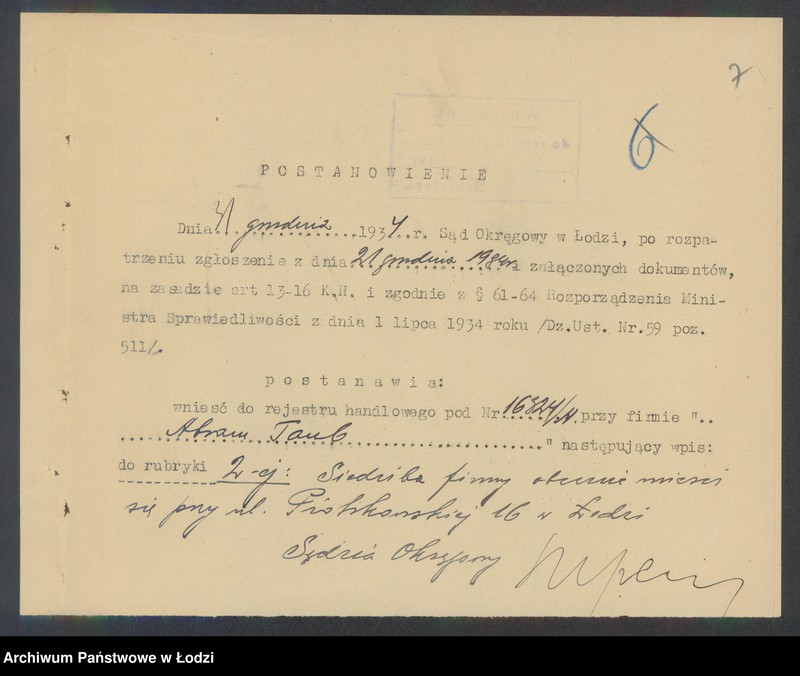 7
6
POSTANOWIENIE
Dnia 31 grudnia 1934 r. Sąd Okręgowy w Łodzi, po rozpa-
trzeniu zgłoszenie z dnia 21 grudnia 1934 r. i załączonych dokumentów,
na zasadzie art 13-16 K.H. i zgodnie z § 61-64 Rozporządzenia Mini-
stra Sprawiedliwości z dnia 1 lipca 1934 roku /Dz.Ust. Nr.59 poz.
511/.
postanawia:
wnieść do rejestru handlowego pod Nr 16824/A. przy firmie "..
Abram Taub " następujący wpis:
do rubryki 2-ej: Siedziba firmy obecnie mieści
się przy ul. Piotrkowskiej 16 w Łodzi
Sędzia Okręgowy
Archiwum Państwowe w Łodzi